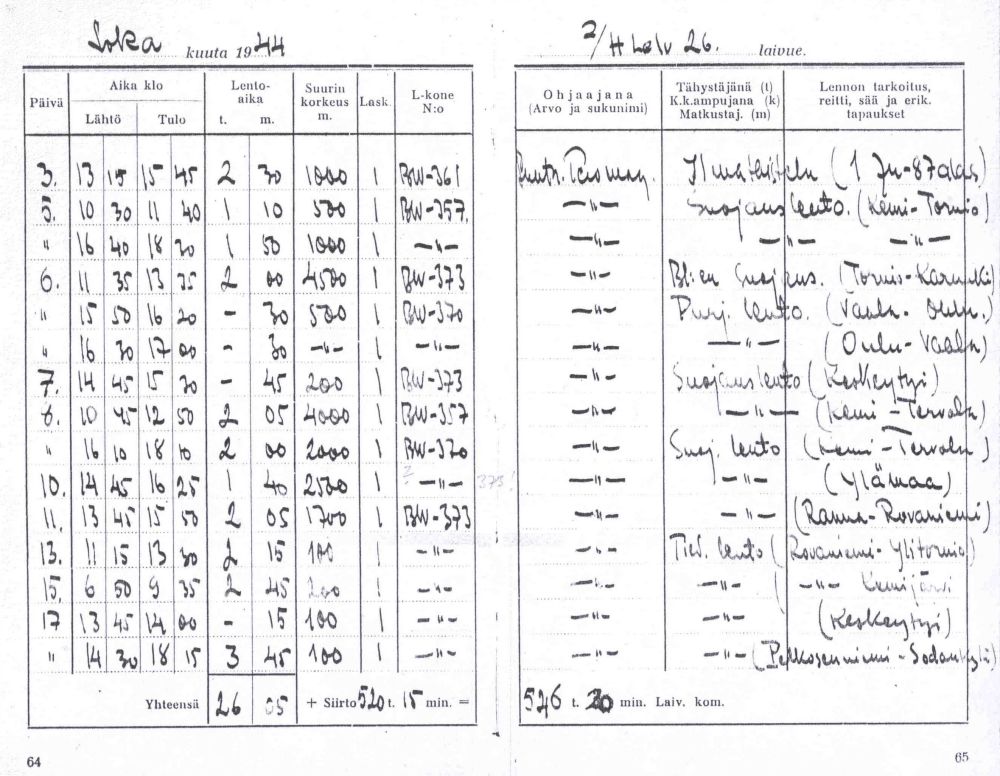 Loka kuuta 1944
2/H Lelv 26. laivue.
Päivä Aika klo Lento-aika Suurin korkeus m. Lask. L-kone N:o Ohjaajana (Arvo ja sukunimi) Tähystäjänä (t) K.k.ampujana (k) Matkustaj. (m) Lennon tarkoitus, reitti, sää ja erik. tapaukset
Lähtö Tulo t. m.
3. 13 15 15 45 2 30 1000 1 BW-361 Ilmataistelu (1 Ju-87 alas)
5. 10 30 11 40 1 10 500 1 BW-357. —"— Suojauslento. (Kemi-Tornio)
" 16 40 18 30 1 50 1000 1 —"— —"— —"— —"—
6. 11 35 13 35 2 00 4500 1 BW-373 —"— Bl:en Suojaus. (Tornio-Karunki)
" 15 50 16 20 - 30 500 1 BW-370 —"— lento. (Vaala- Oulu.)
" 16 30 17 00 - 30 —"— 1 —"— —"— —"— (Oulu-Vaala)
7. 14 45 15 30 - 45 200 1 BW-373 —"— Suojauslento (Keskeytyi)
8. 10 45 12 50 2 05 4000 1 BW-357 —"— —"— (Kemi-Tervola)
" 16 10 18 10 2 00 2000 1 BW-370 —"— Suoj. lento (Kemi-Tervola)
10. 14 45 16 25 1 40 2500 1 ? —"— 373! —"— —"— (Ylämaa)
11. 13 45 15 50 2 05 1700 1 BW-373 —"— —"— (Ranua-Rovaniemi)
13. 11 15 13 30 2 15 100 1 —"— —"— Tied. lento (Rovaniemi-Ylitornio)
15. 6 50 9 35 2 45 200 1 —"— —"— —"— ( —"— Kemijärvi
17 13 45 14 00 - 15 100 1 —"— —"— —"— (Keskeytyi)
" 14 30 18 15 3 45 100 1 —"— —"— —"— (Pelkosenniemi-Sodankylä)
Yhteensä 26 05 + Siirto 520 t. 15 min. = 546 t. 20 min. Laiv. kom.
64
65